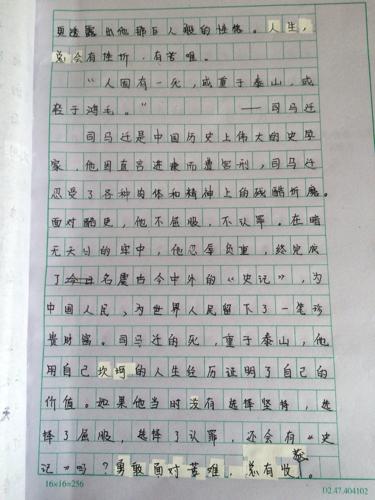 更透露出他那巨人般的性格。人生，
总会有挫折，有苦难。
“人固有一死，或重于泰山，或
轻于鸿毛。”——司马迁
司马迁是中国历史上伟大的史学
家，他因直言进谏而遭宫刑，司马迁
忍受了各种肉体和精神上的残酷折磨。
面对酷吏，他不屈服，不认罪。在暗
无天日的牢中，他忍辱负重，终完成
了名震古今中外的“史记”，为
中国人民，为世界人民留下了一笔珍
贵财富。司马迁的死，重于泰山，他
用自己坎坷的人生经历证明了自己的
价值。如果他当时没有选择坚持，选
择了屈服，选择了认罪，还会有“史
记”吗？勇敢面对苦难，总有收获。
16×16=256
D2.47.404102